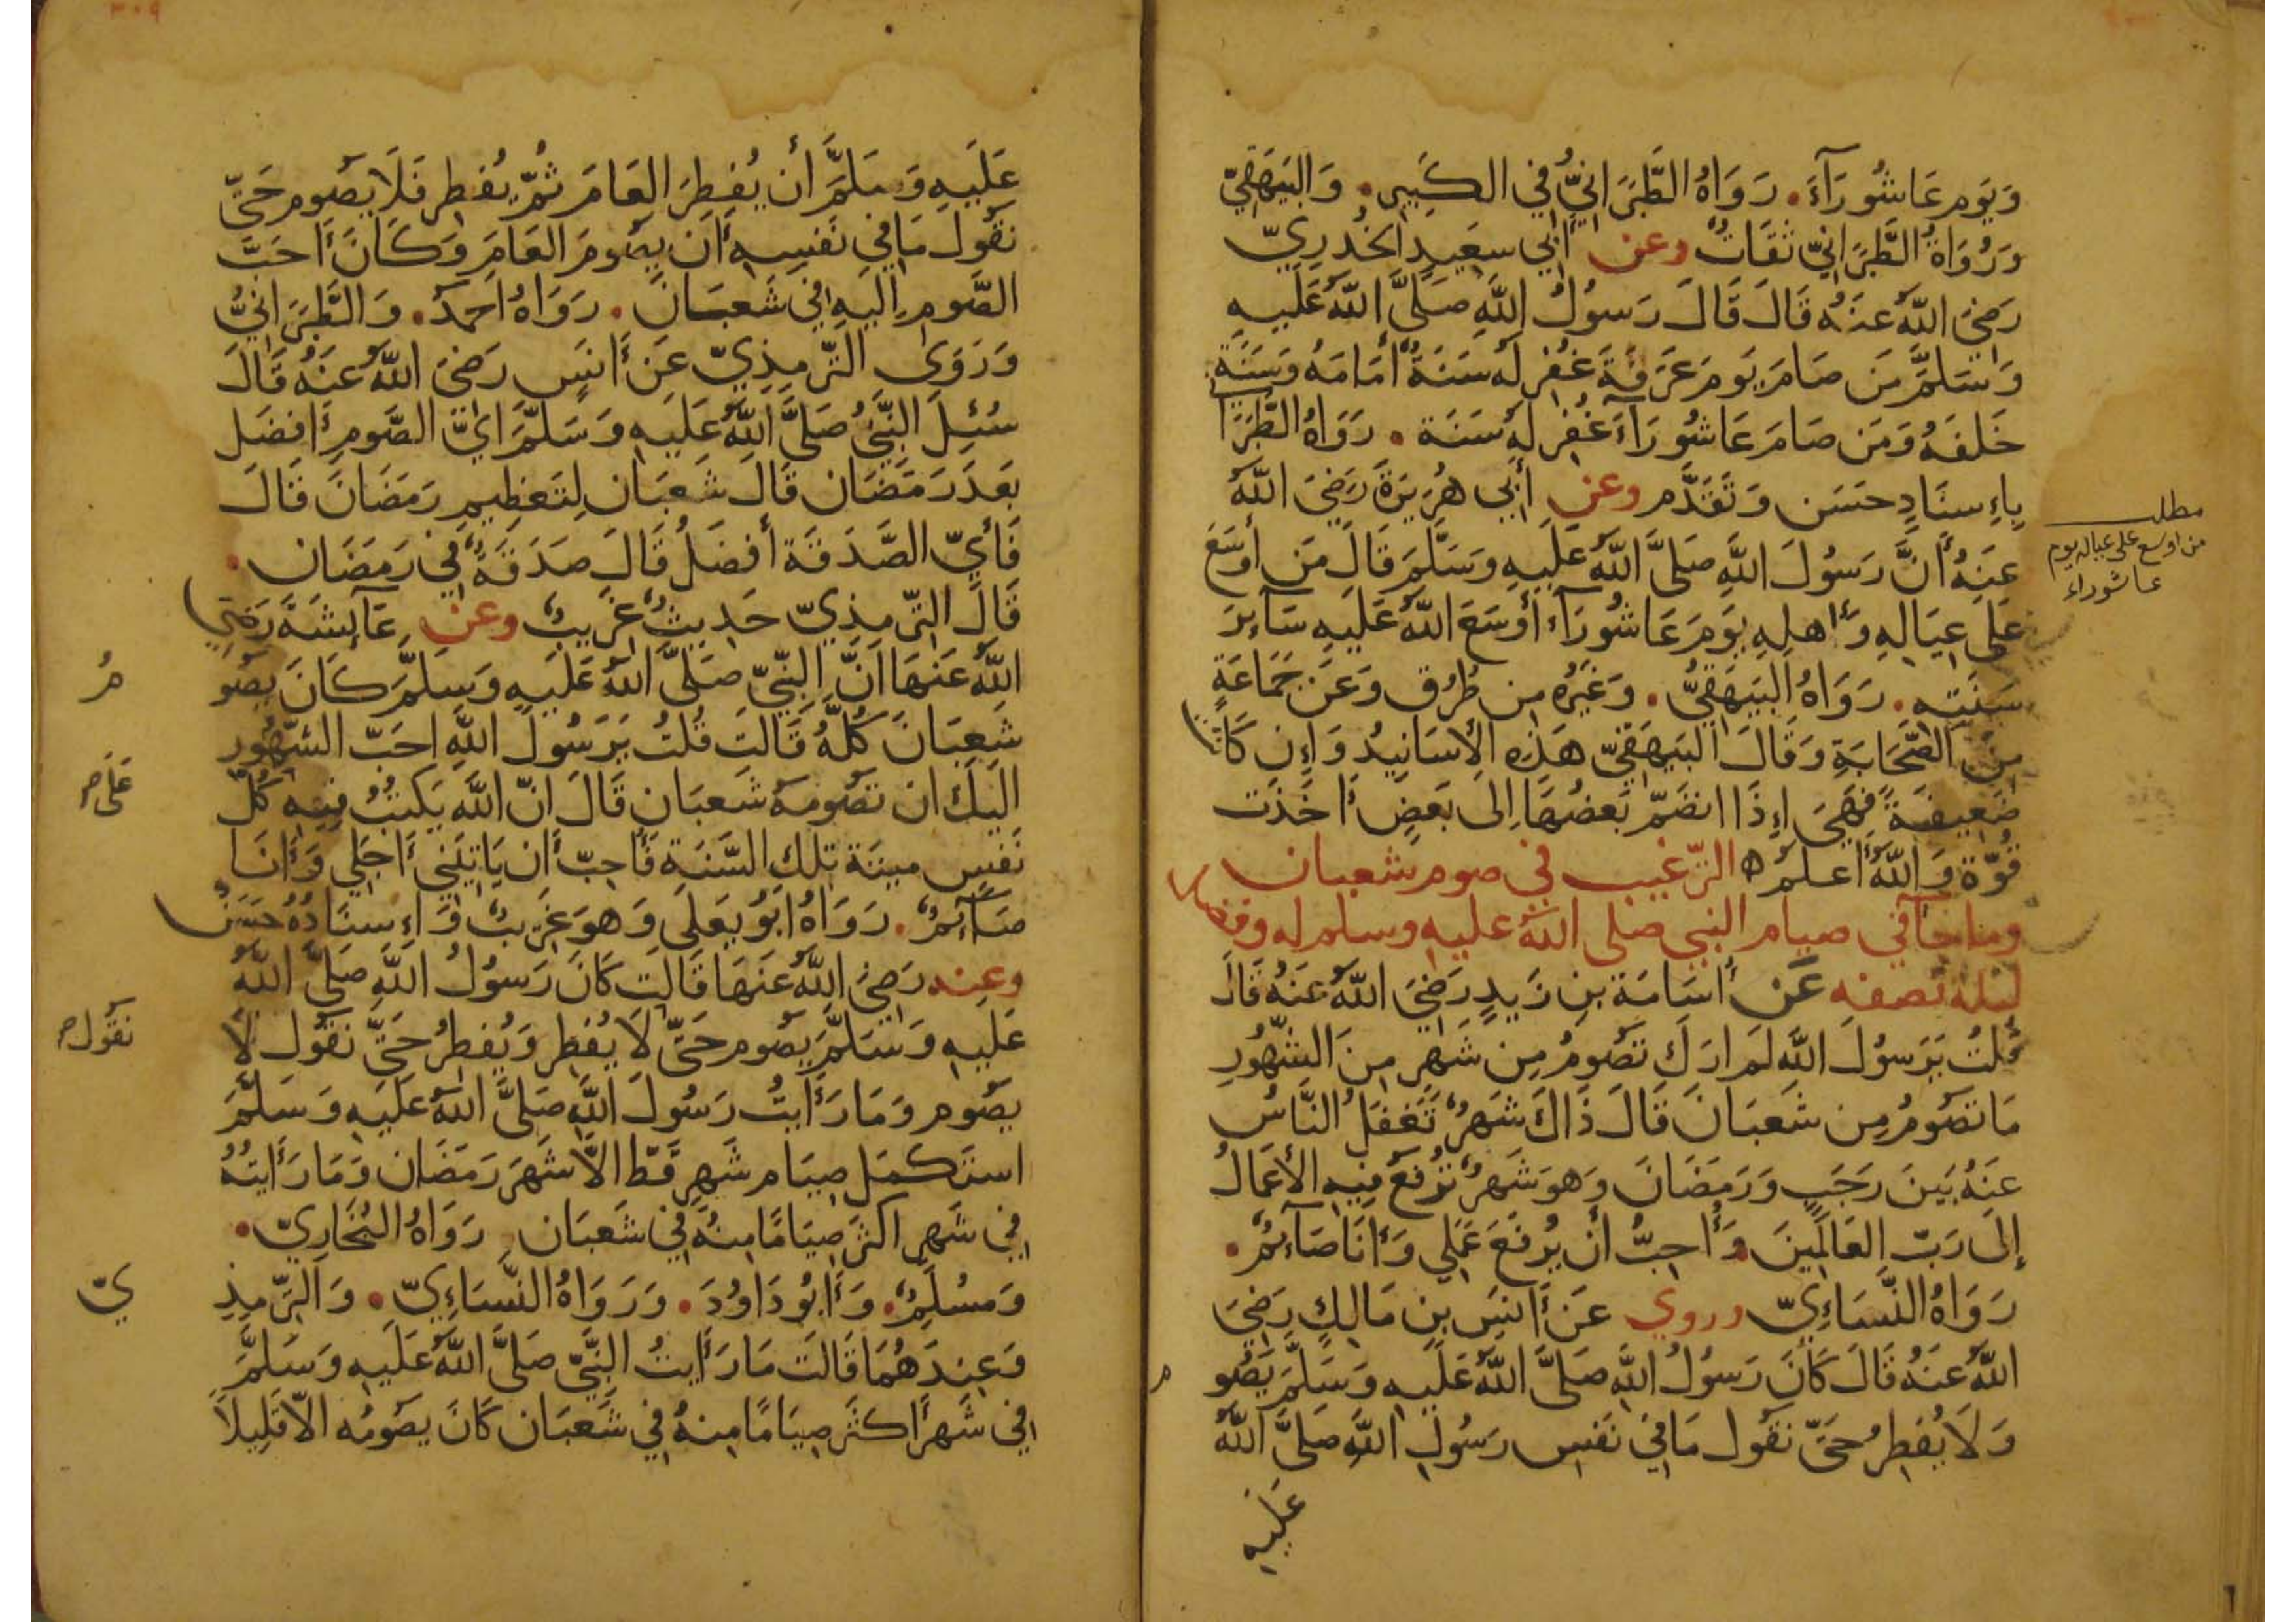 وَيَوم عَاشُورَآءَ. رَوَاهُ الطَّبَرَانِيُّ فِي الكَبِيرِ. وَالبَيهَقِيّ
وَرُوَاةُ الطَّبَرَانِيّ ثقَاتٌ وعن أَبِي سعَيدٍ الخُدرِيّ
رَضيَ اللّهُ عنَهُ قَالَ قَالَ رَسوُلُ اللَّهِ صَلىَّ اللّهُ عَلَيهِ
وَسَلمَّ مَن صَامَ يَومَ عَرَفَةَ غفُرِ لَهُ سَنَةٌ أمَامَهُ وَسَنَةٌ
خَلفَهُ وَمَن صَامَ عَاشُورَآءَ غفُرِ لَهُ سَنَة. رَوَاهُ الطَّبَرَا
بِإِسنَادٍ حسَن وَتَقَدَّم وعن أَبِي هرُيَرَةَ رَضيَ اللّهُ
مطلب
من اوسع على عياله يوم
عاشوراء
عنَهُ أَنَّ رَسُولَ اللَّهِ صَلىَّ اللّهُ عَلَيهِ وَسَلَّمَ قَالَ مَن أوسَعَ
عَلىَ عِيَالِهِ وَأَهلِهِ يَومَ عَاشُورَآءَ أَوسَعَ اللّهُ عَلَيهِ سَآئرَ
سَنَتِهِ. رَوَاهُ البَيَهقِيُّ. وَغَيَرُه مِن طُرُق وَعَن جَمَاعَةٍ
مِنَ الصَّحَابَةِ وَقَالَ البَيَهقيّ هَذِهِ الأسَانِيدُ وَإِن كَانَت
ضَعِيفَةً فَهِيَ إِذَا انضَمّ بَعضُهَا إِلى بَعَضٍ أَخَذَت
قُوّة وَاللّهُ أَعلمُ ه الترّغيب في صوم شعبان
وما جآفي صيام النبي صلى اللّه عليه وسلم له وفضل
ليلة نصفه عَن أُسَامَة بنِ زَيدٍ رَضيَ اللّهُ عنَهُ قَالَ
قُلتُ يَرَسوُلَ اللَّه لَم ارَكَ تَصَومُ مِن شَهرٍ مِنَ الشهُّورِ
مَا تَصَومُ مِن شَعبَانَ قَالَ ذَاكَ شَهرٌ تَغفَلُ النَّاسُ
عَنهُ بَينَ رَجَبٍ وَرَمَضَانَ وَهوَ شَهرٌ تُرفَعُ فِيهِ الأَعمَالُ
إِلىَ رَبّ العَالَمِينَ وَأُحِبُّ أَن يُرفَعَ عَملِي وَأَنَا صَآئمٌ.
رَوَاهُ النَّسَاءِيّ وروي عَن أَنَسَ بنِ مَالِكٍ رَضيَ
اللّهُ عَنهُ قَالَ كَانَ رَسوُلُ اللَّهِ صَلىَّ اللّهُ عَلَيهِ وَسَلَّمَ يَصُو
م
وَلاَ يُفطِرُ حَتىّ نَقَول مَا فيِ نَفسِ رَسُولِ اللَّهِ صَلىَّ اللّهُ
عَلَيهِ
٣٠٩
عَلَيهِ وَسَلمَّ أَن يُفطِرَ العَامَ ثُمّ يُفطِر فَلاَ يصَوم حَتىّ
نَقَول مَا في نَفسِهِ أَن يصَومَ العَامَ وَكَانَ أَحَبّ
الصَّومِ إِليَهِ في شَعبَانَ. رَوَاهُ احَمدُ. وَالطَّبَرَانيُّ
وَرَوَى الترّمِذِيّ عَن أَنَسٍ رَضيَ اللّهُ عنَهُ قَالَ
سُئِلَ النَّبيُّ صَلىَّ اللّهُ عَلَيهِ وَسَلَّمَ ايّ الصَّومِ أَفضَل
بَعدَ رَمَضَان قَالَ شَعبَان لِتَعظِيمِ رَمَضَانَ قَالَ
فَأَيّ الصَّدَقَة أَفضَلُ قَالَ صَدَقَةٌ في رَمَضَان.
قَالَ الترّمِذِيّ حَدِيثٌ غَرِيبٌ وعن عَآئِشَةَ رَضِيَ
اللّهُ عَنهَا أَنَّ النَّبيّ صَلىَّ اللّهُ عَلَيهِ وَسَلَّمَ كَانَ يَصُو
مُ
شَعبَانَ كُلَّهُ قَالَت قُلتُ يَرَسُولَ اللَّهِ احَبّ الشهُّورِ
اليَكَ ان تَصَومهُ شَعبَانِ قَالَ انّ اللَّهَ يَكتبُ فِيهِ كُلّ
عَلى صح
نَفسٍ ميتَة تِلكَ السَّنَةِ فَأُحِبّ أَن يَاتِيَنِي أَجَلِي وَأَنَا
صَآئمٌ. رَوَاهُ ابَوُ يَعلَى وَهوَ غَرِيبٌ وَإِسنَادُهُ حَسَنٌ
وعِنه رَضيَ اللّهُ عَنهَا قَالَت كَانَ رَسوُلُ اللَّهِ صَلىَّ اللّهُ
عَلَيهِ وَسَلمَّ يَصَوم حَتىّ لاَ يُفطِر وَيُفطِرُ حَتىّ نَقَول لاَ
نقَول صح
يصَوم وَمَا رَأَيتُ رَسُولَ اللَّهِ صَلىَّ اللّهُ عَلَيهِ وَسَلَّمَ
استَكمَلَ صِيَام شَهرٍ قَطّ الاَّ شَهرَ رَمَضَان وَمَا رَأَيتُهُ
فِي شَهرٍ اكثرَ صِيَامًا مِنهُ في شَعبَان رَوَاهُ البُخَارِيّ.
وَمسُلِمٌ. وَأَبُو دَاوُدَ. وَرَوَاهُ النَّسَاءِيّ. وَالترّمِذِ
يّ
وَعِندَهُمَا قَالَت مَا رَأَيتُ النَّبيّ صَلىَّ اللّهُ عَلَيهِ وَسَلَّمَ
فِي شَهرٍ أَكثَر صِيَامًا مِنهُ في شَعبَان كَانَ يصَومُه الاّ قَلِيلاً